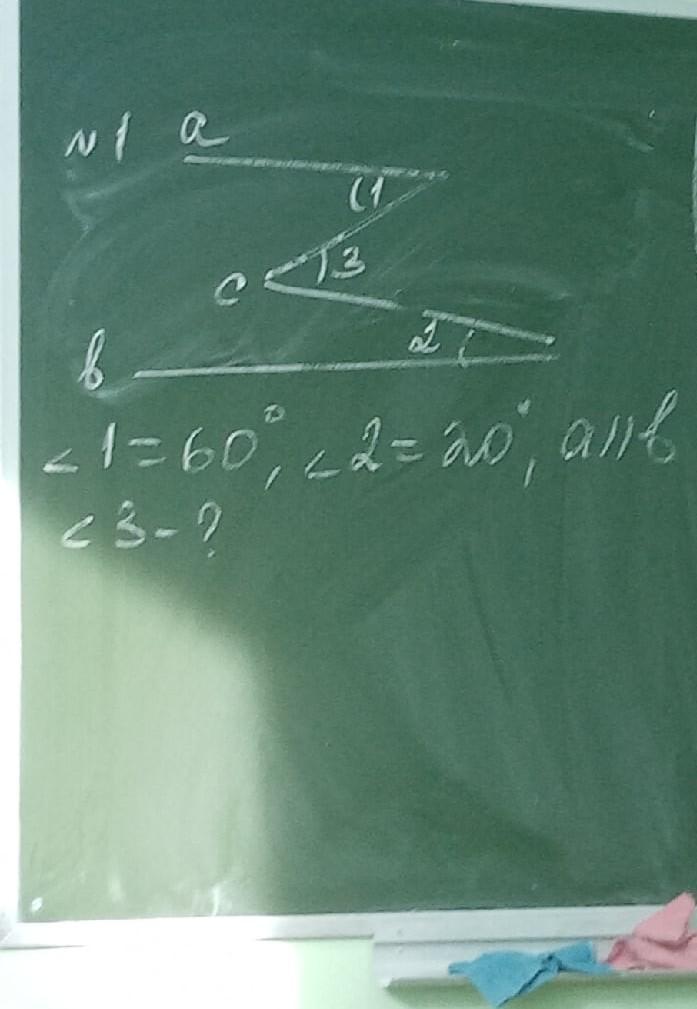 №1 a
1
3
c
2
b
∠1=60°, ∠2=20°, a||b
∠3-?